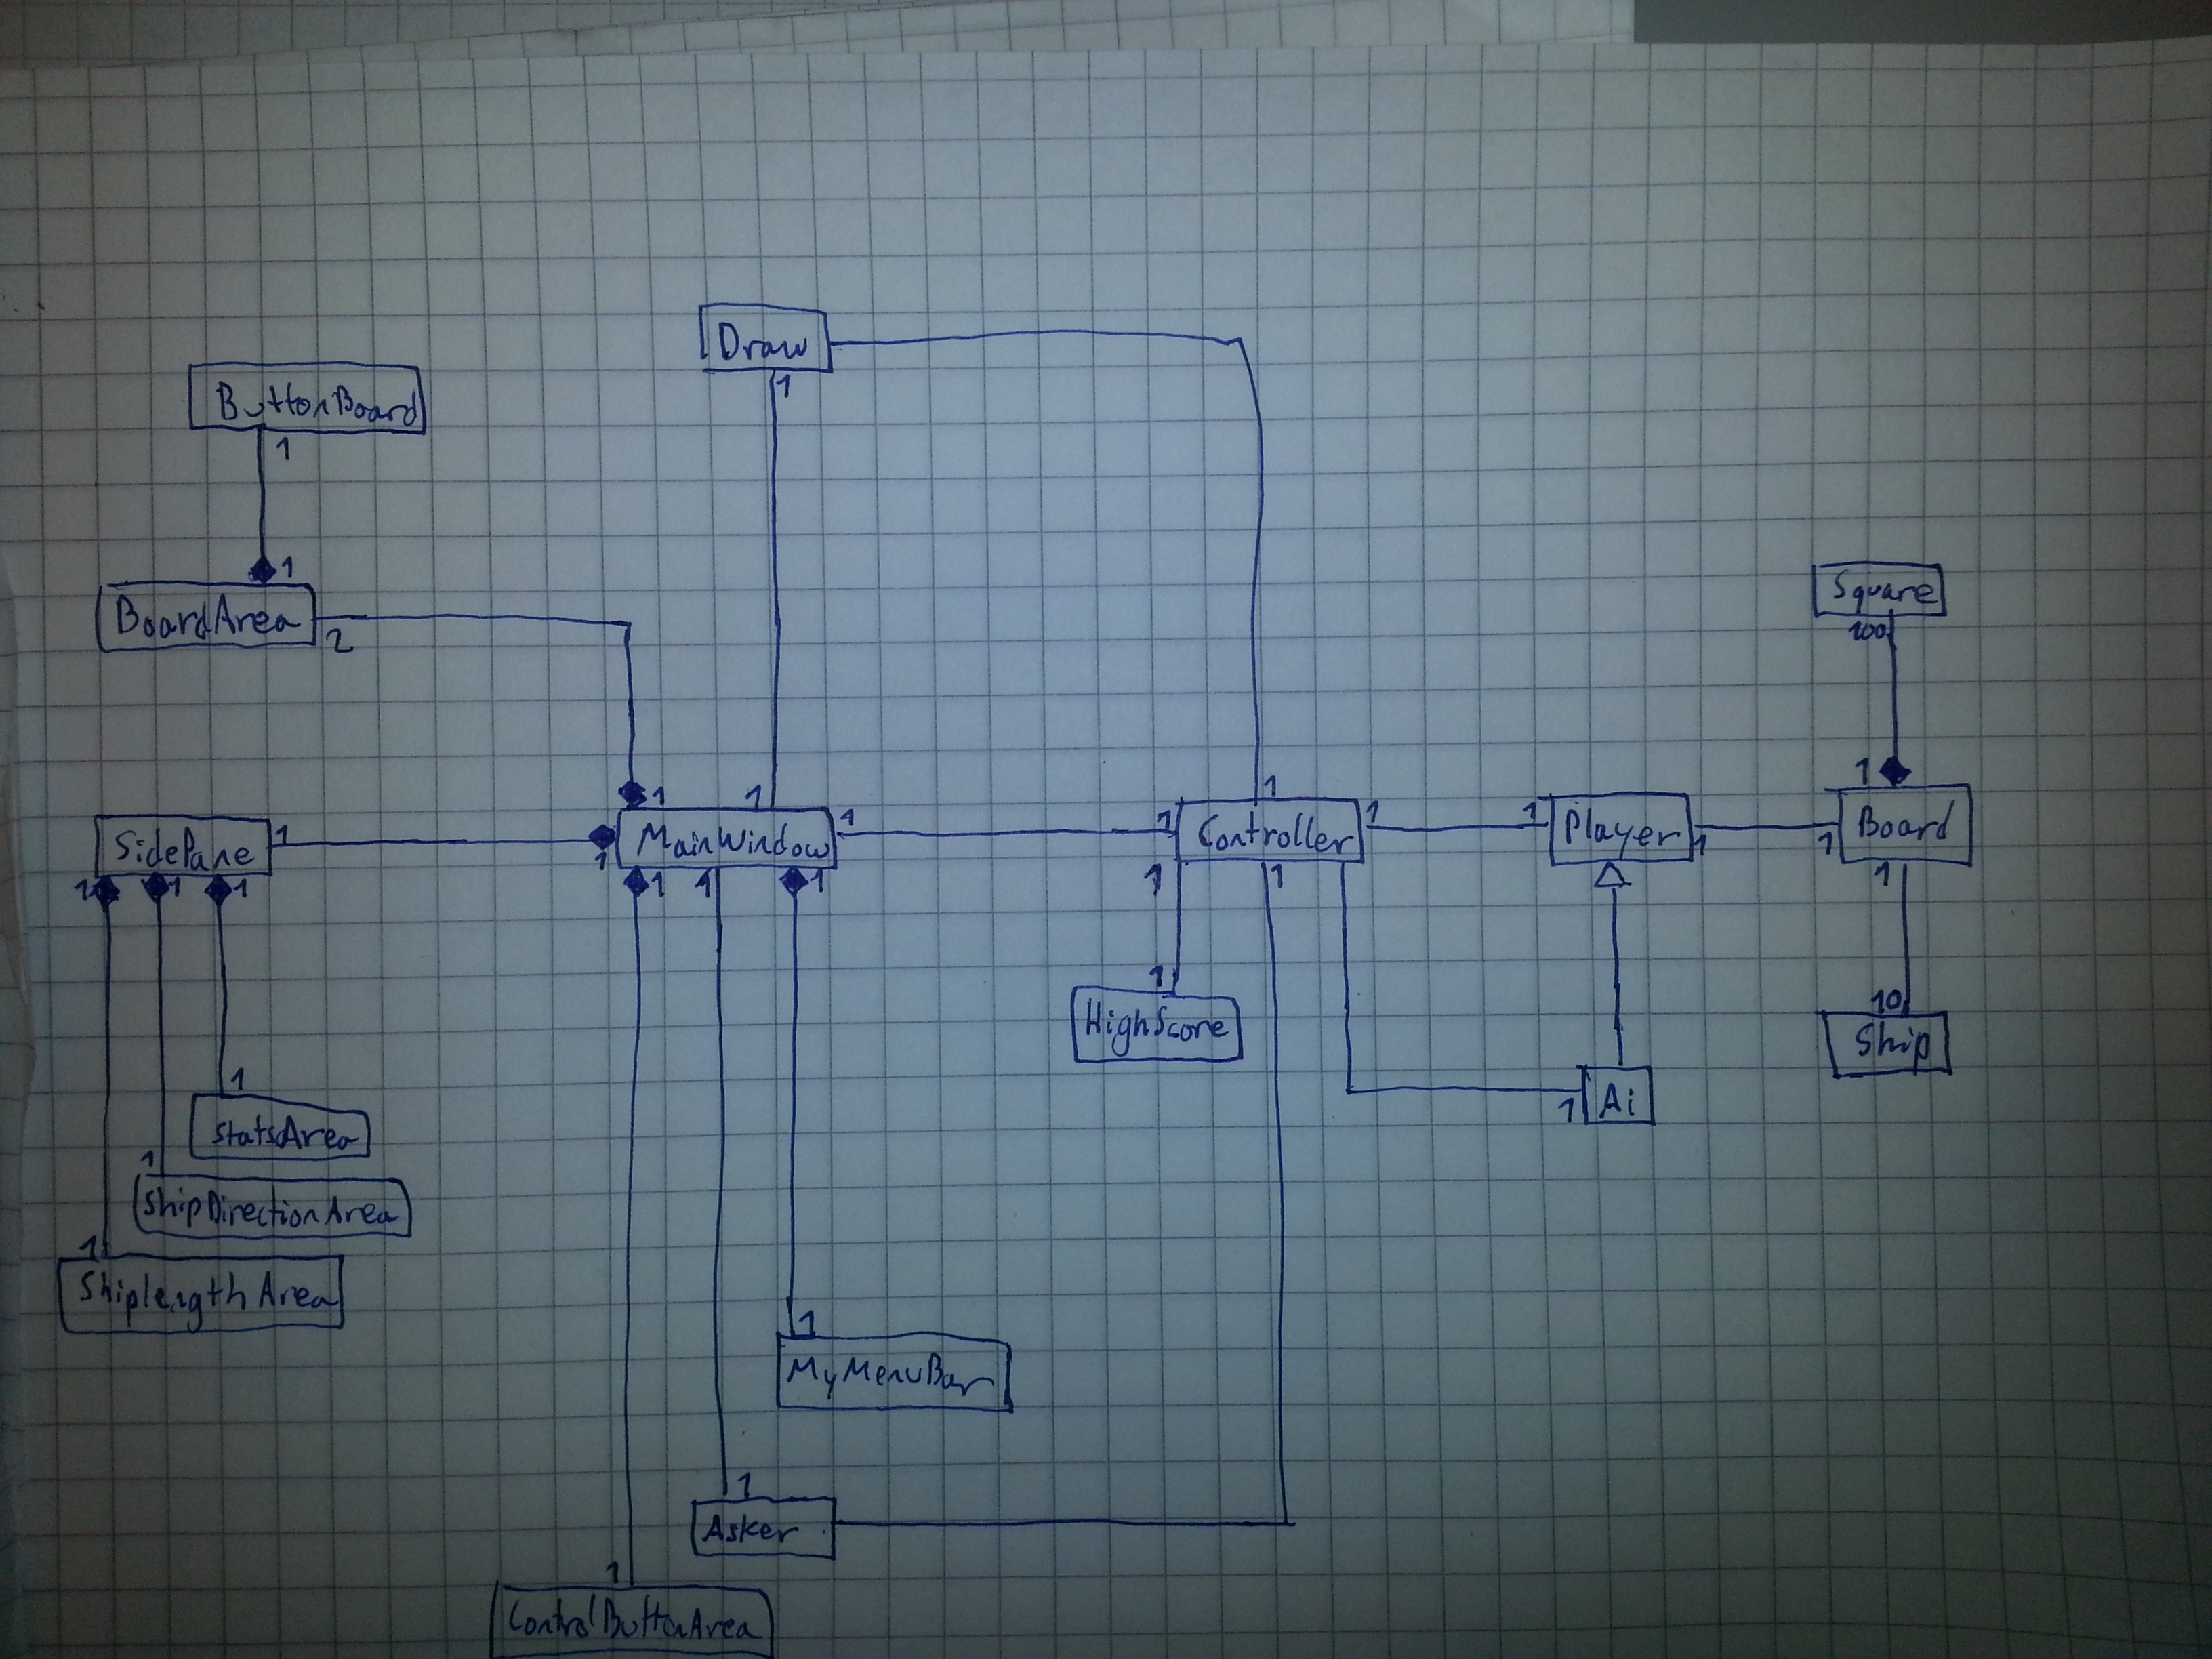 Draw
1
ButtonBoard
1
1
BoardArea
2
Square
100
1
1
1
1
SidePane
1
1
MainWindow
1
1
Controller
1
1
Player
1
1
Board
1
1
1
1
1
1
1
1
1
1
1
HighScore
10
Ship
1
Ai
1
StatsArea
1
ShipDirectionArea
1
ShiplengthArea
1
MyMenuBar
1
Asker
1
ControlButtonArea